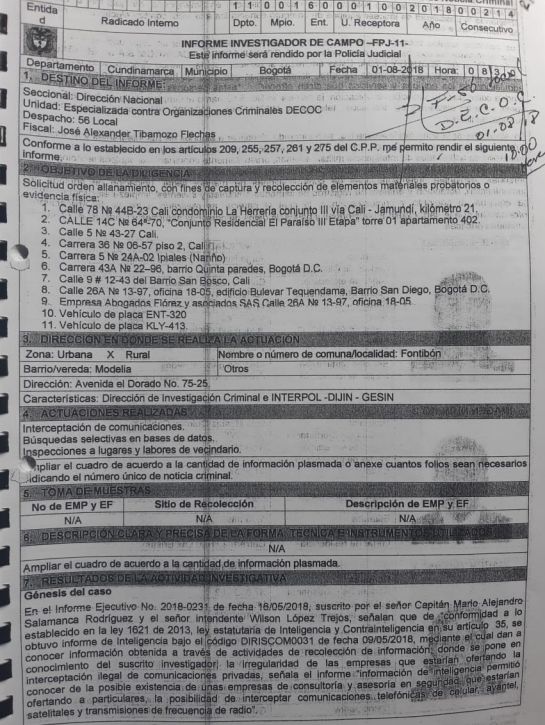 Entida
d
Radicado Interno
1 1 0 0 1 6 0 0 0 1 0 0 2 0 1 8 0 0 2 1 4
Dpto. Mpio. Ent. U. Receptora Año Consecutivo
INFORME INVESTIGADOR DE CAMPO –FPJ-11-
Este informe será rendido por la Policía Judicial
Departamento Cundinamarca Municipio Bogotá Fecha 01-08-2018 Hora: 0 8 3
1. DESTINO DEL INFORME:
Seccional: Dirección Nacional
Unidad: Especializada contra Organizaciones Criminales DECOC
Despacho: 56 Local
Fiscal: José Alexander Tibamozo Flechas
D.E.C.O.C
01.08.18
10:00
Conforme a lo establecido en los artículos 209, 255, 257, 261 y 275 del C.P.P. me permito rendir el siguiente
informe.
2. OBJETIVO DE LA DILIGENCIA
Solicitud orden allanamiento, con fines de captura y recolección de elementos materiales probatorios o
evidencia física:
1. Calle 78 № 44B-23 Cali condominio La Herrería conjunto III vía Cali - Jamundí, kilómetro 21.
2. CALLE 14C № 64ª-70, "Conjunto Residencial El Paraíso III Etapa" torre 01 apartamento 402.
3. Calle 5 № 43-27 Cali.
4. Carrera 36 № 06-57 piso 2, Cali
5. Carrera 5 № 24A-02 Ipiales (Nariño)
6. Carrera 43A № 22–96, barrio Quinta paredes, Bogotá D.C.
7. Calle 9 # 12-43 del Barrio San Bosco, Cali
8. Calle 26A № 13-97, oficina 18-05, edificio Bulevar Tequendama, Barrio San Diego, Bogotá D.C.
9. Empresa Abogados Flórez y asociados SAS Calle 26A № 13-97, oficina 18-05.
10. Vehículo de placa ENT-320
11. Vehículo de placa KLY-413.
3. DIRECCIÓN EN DONDE SE REALIZA LA ACTUACIÓN
Zona: Urbana X Rural Nombre o número de comuna/localidad: Fontibón
Barrio/vereda: Modelia Otros
Dirección: Avenida el Dorado No. 75-25.
Características: Dirección de Investigación Criminal e INTERPOL -DIJIN - GESIN
4. ACTUACIONES REALIZADAS
Interceptación de comunicaciones.
Búsquedas selectivas en bases de datos.
Inspecciones a lugares y labores de vecindario.
mpliar el cuadro de acuerdo a la cantidad de información plasmada o anexe cuantos folios sean necesarios
indicando el número único de noticia criminal.
5. TOMA DE MUESTRAS
No de EMP y EF Sitio de Recolección Descripción de EMP y EF
N/A N/A N/A
6. DESCRIPCIÓN CLARA Y PRECISA DE LA FORMA, TÉCNICA E INSTRUMENTOS UTILIZADOS
N/A
Ampliar el cuadro de acuerdo a la cantidad de información plasmada.
7. RESULTADOS DE LA ACTIVIDAD INVESTIGATIVA
Génesis del caso
En el Informe Ejecutivo No. 2018-0231 de fecha 16/05/2018, suscrito por el señor Capitán Mario Alejandro
Salamanca Rodríguez y el señor intendente Wilson López Trejos, señalan que de "conformidad a lo
establecido en la ley 1621 de 2013, ley estatutaria de Inteligencia y Contrainteligencia en su artículo 35, se
obtuvo informe de Inteligencia bajo el código DIRISCOM0031 de fecha 09/05/2018, mediante el cual dan a
conocer información obtenida a través de actividades de recolección de información; donde se pone en
conocimiento del suscrito investigador la irregularidad de las empresas que estarían ofertando la
interceptación ilegal de comunicaciones privadas, señala el informe "información de inteligencia permitió
conocer de la posible existencia de unas empresas de consultoría y asesoría en seguridad, que estarían
ofertando a particulares, la posibilidad de interceptar comunicaciones telefónicas de celular, avantel,
satelitales y transmisiones de frecuencia de radio".